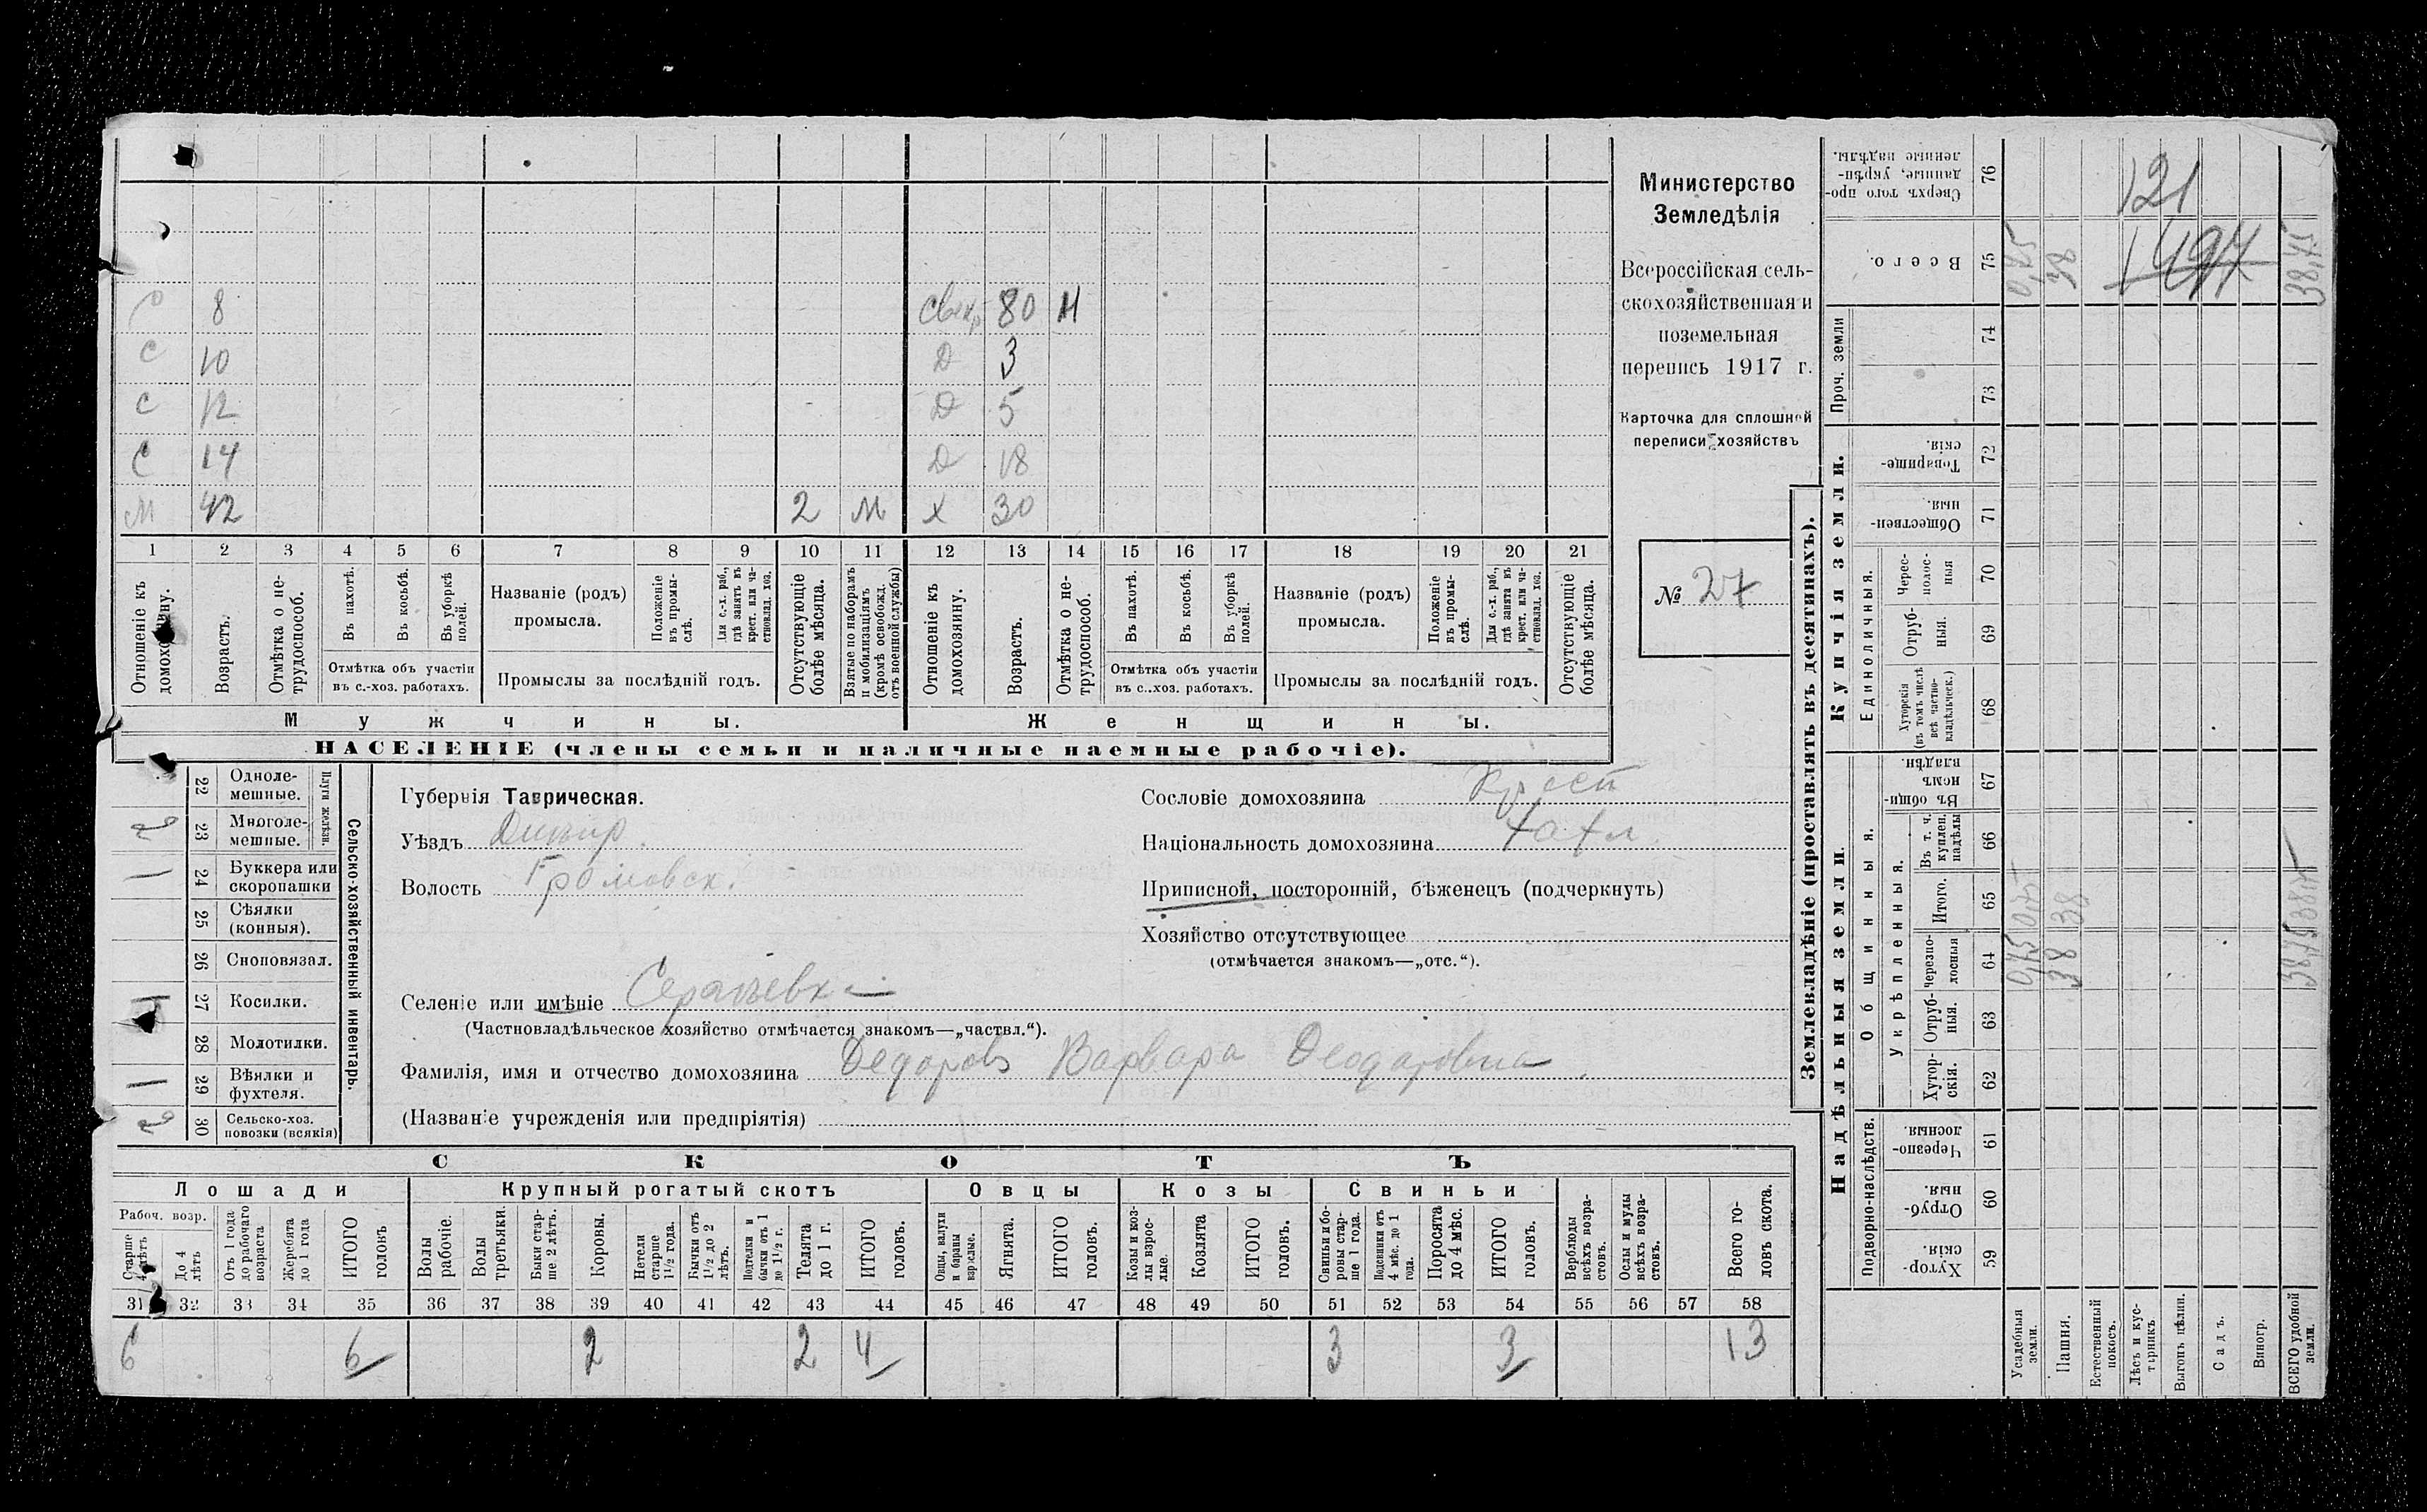 С 8 Свекр 80 Н
С 10 Д 3
С 12 Д 5
С 14 Д 18
М 42 2 М Х 30
1 2 3 4 5 6 7 8 9 10 11 12 13 14 15 16 17 18 19 20 21
Отношеніе къ домохозяину.
Возрастъ.
Отмѣтка о не-трудоспособ.
Въ пахотѣ.
Въ косьбѣ.
Въ уборкѣ полей.
Отмѣтка объ участіи
въ с.-хоз. работахъ.
Названіе (родъ)
промысла.
Положеніе въ промы-слѣ.
Для с.-х. раб., гдѣ занятъ въ крест. или ча-стновлад. хоз.
Промыслы за послѣдній годъ.
Отсутствующіе болѣе мѣсяца.
Взятые по наборамъ и мобилизаціямъ (кромѣ освобожд. отъ военной службы)
Отношеніе къ домохозяину.
Возрастъ.
Отмѣтка о не-трудоспособ.
Въ пахотѣ.
Въ косьбѣ.
Въ уборкѣ полей.
Отмѣтка объ участіи
въ с..хоз. работахъ.
Названіе (родъ)
промысла.
Положеніе въ промы-слѣ.
Для с.-х. раб., гдѣ занята въ крест. или ча-стновлад. хоз.
Промыслы за послѣдній годъ.
Отсутствующіе болѣе мѣсяца.
Мужчины.
Женщины.
НАСЕЛЕНІЕ (члены семьи и наличные наемные рабочіе).
Министерство
Земледѣлія
Всероссійская сель-
скохозяйственная и
поземельная
перепись 1917 г.
Карточка для сплошной
переписи хозяйствъ
№ 27
Сельско-хозяйственный инвентарь.
Плуги желѣзн.
22 Одноле-мешные.
2 23 Многоле-мешные.
1 24 Буккера или скоропашки
25 Сѣялки (конныя).
26 Сноповязал.
1 27 Косилки.
28 Молотилки.
1 29 Вѣялки и фухтеля.
2 30 Сельско-хоз. повозки (всякія)
Губернія Таврическая.
Уѣздъ Днѣпр.
Волость Громовск.
Селеніе или имѣніе
(Частновладѣльческое хозяйство отмѣчается знакомъ—„частвл.“).
Фамилія, имя и отчество домохозяина Федоровъ Варвара Феодоровна
(Названіе учрежденія или предпріятія)
Сословіе домохозяина Крест
Національность домохозяина хохл.
Приписной, посторонній, бѣженецъ (подчеркнуть)
Хозяйство отсутствующее
(отмѣчается знакомъ—„отс.“).
СКОТЪ
Лошади Крупный рогатый скотъ Овцы Козы Свиньи
Рабоч. возр.
Старше 4 лѣтъ
До 4 лѣтъ
Отъ 1 года до рабочаго возраста
Жеребята до 1 года
ИТОГО головъ
Волы рабочіе.
Волы третьяки.
Быки стар-ше 2 лѣтъ.
Коровы.
Нетели старше 1½ года.
Бычки отъ 1½ до 2 лѣтъ.
Подтелки и бычки отъ 1 до 1½ г.
Телята до 1 г.
ИТОГО головъ.
Овцы, валухи и бараны взрослые.
Ягнята.
ИТОГО головъ.
Козы и коз-лы взрос-лые.
Козлята
ИТОГО головъ.
Свиньи и бо-ровы стар-ше 1 года.
Подсвинки отъ 4 мѣс. до 1 года.
Поросята до 4 мѣс.
ИТОГО головъ.
Верблюды всѣхъ возра-стовъ.
Ослы и мулы всѣхъ возра-стовъ.
Всего го-ловъ скота.
31 32 33 34 35 36 37 38 39 40 41 42 43 44 45 46 47 48 49 50 51 52 53 54 55 56 57 58
6 6 2 2 4 3 3 13
Землевладѣніе (проставлять въ десятинахъ).
Купчія земли.
Надѣльныя земли.
Сверхъ того про-данные, укрѣп-ленные надѣлы. 76 121
Всего. 75 0,75 38 1497 38,75
Проч. земли
74
73
Товарище-скія. 72
Обществен-ныя. 71
Единоличныя.
Черес-полос-ныя 70
Отруб-ныя. 69
Хуторскія (въ томъ числѣ всѣ частно-владѣльческ.) 68
Общинныя.
Въ общи-номъ владѣн. 67
Укрѣпленныя.
Въ т. ч. куплен. надѣлы 66
Итого. 65 0,75 38 38,75
Черезпо-лосныя 64 0,75 38 38,75
Отруб-ныя. 63
Хутор-скія. 62
Подворно-наслѣдств.
Черезпо-лосныя. 61
Отруб-ныя. 60
Хутор-скія. 59
Усадебныя земли.
Пашня.
Естественный покосъ.
Лѣсъ и кус-тарникъ.
Выгонъ цѣлин.
Садъ.
Виногр.
ВСЕГО удобной земли.